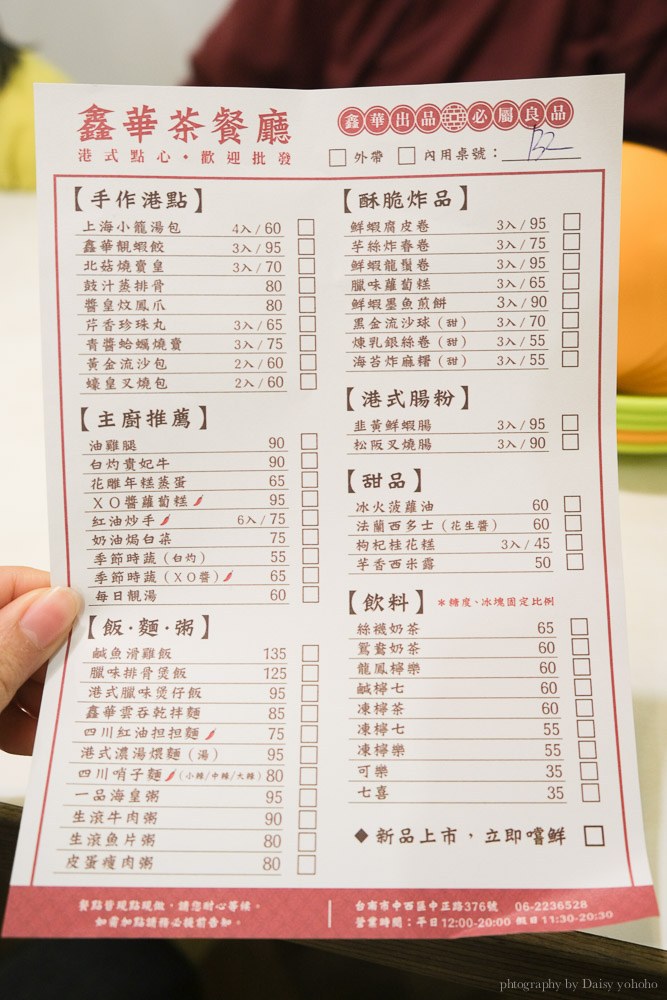 鑫華茶餐廳
港式點心・歡迎批發
鑫華出品 必屬良品
外帶 內用桌號：
【手作港點】
上海小籠湯包 4入/60
鑫華靚蝦餃 3入/95
北菇燒賣皇 3入/70
鼓汁蒸排骨 80
醬皇炆鳳爪 80
芹香珍珠丸 3入/65
青醬蛤蠣燒賣 3入/75
黃金流沙包 2入/60
蠔皇叉燒包 2入/60
【主廚推薦】
油雞腿 90
白灼貴妃牛 90
花雕年糕蒸蛋 65
XO醬蘿蔔糕 95
紅油炒手 6入/75
奶油焗白菜 75
季節時蔬（白灼） 55
季節時蔬（XO醬） 65
每日靚湯 60
【飯・麵・粥】
鹹魚滑雞飯 135
臘味排骨煲飯 125
港式臘味煲仔飯 95
鑫華雲吞乾拌麵 85
四川紅油担担麵 75
港式濃湯煨麵（湯） 95
四川哨子麵（小辣/中辣/大辣） 80
一品海皇粥 95
生滾牛肉粥 90
生滾魚片粥 80
皮蛋瘦肉粥 80
【酥脆炸品】
鮮蝦腐皮卷 3入/95
芋絲炸春卷 3入/75
鮮蝦龍鬚卷 3入/95
臘味蘿蔔糕 3入/65
鮮蝦墨魚煎餅 3入/90
黑金流沙球（甜） 3入/70
煉乳銀絲卷（甜） 3入/55
海苔炸麻糬（甜） 3入/55
【港式腸粉】
韭黃鮮蝦腸 3入/95
松阪叉燒腸 3入/90
【甜品】
冰火菠蘿油 60
法蘭西多士（花生醬） 60
枸杞桂花糕 3入/45
芋香西米露 50
【飲料】 *糖度、冰塊固定比例
絲襪奶茶 65
鴛鴦奶茶 60
龍鳳檸樂 60
鹹檸七 60
凍檸茶 60
凍檸七 55
凍檸樂 55
可樂 35
七喜 35
◆新品上市，立即嚐鮮
餐點皆現點現做，請您耐心等候。
如需加點請務必提前告知。
台南市中西區中正路376號 06-2236528
營業時間：平日12:00-20:00 假日11:30-20:30
photography by Daisy yohoho